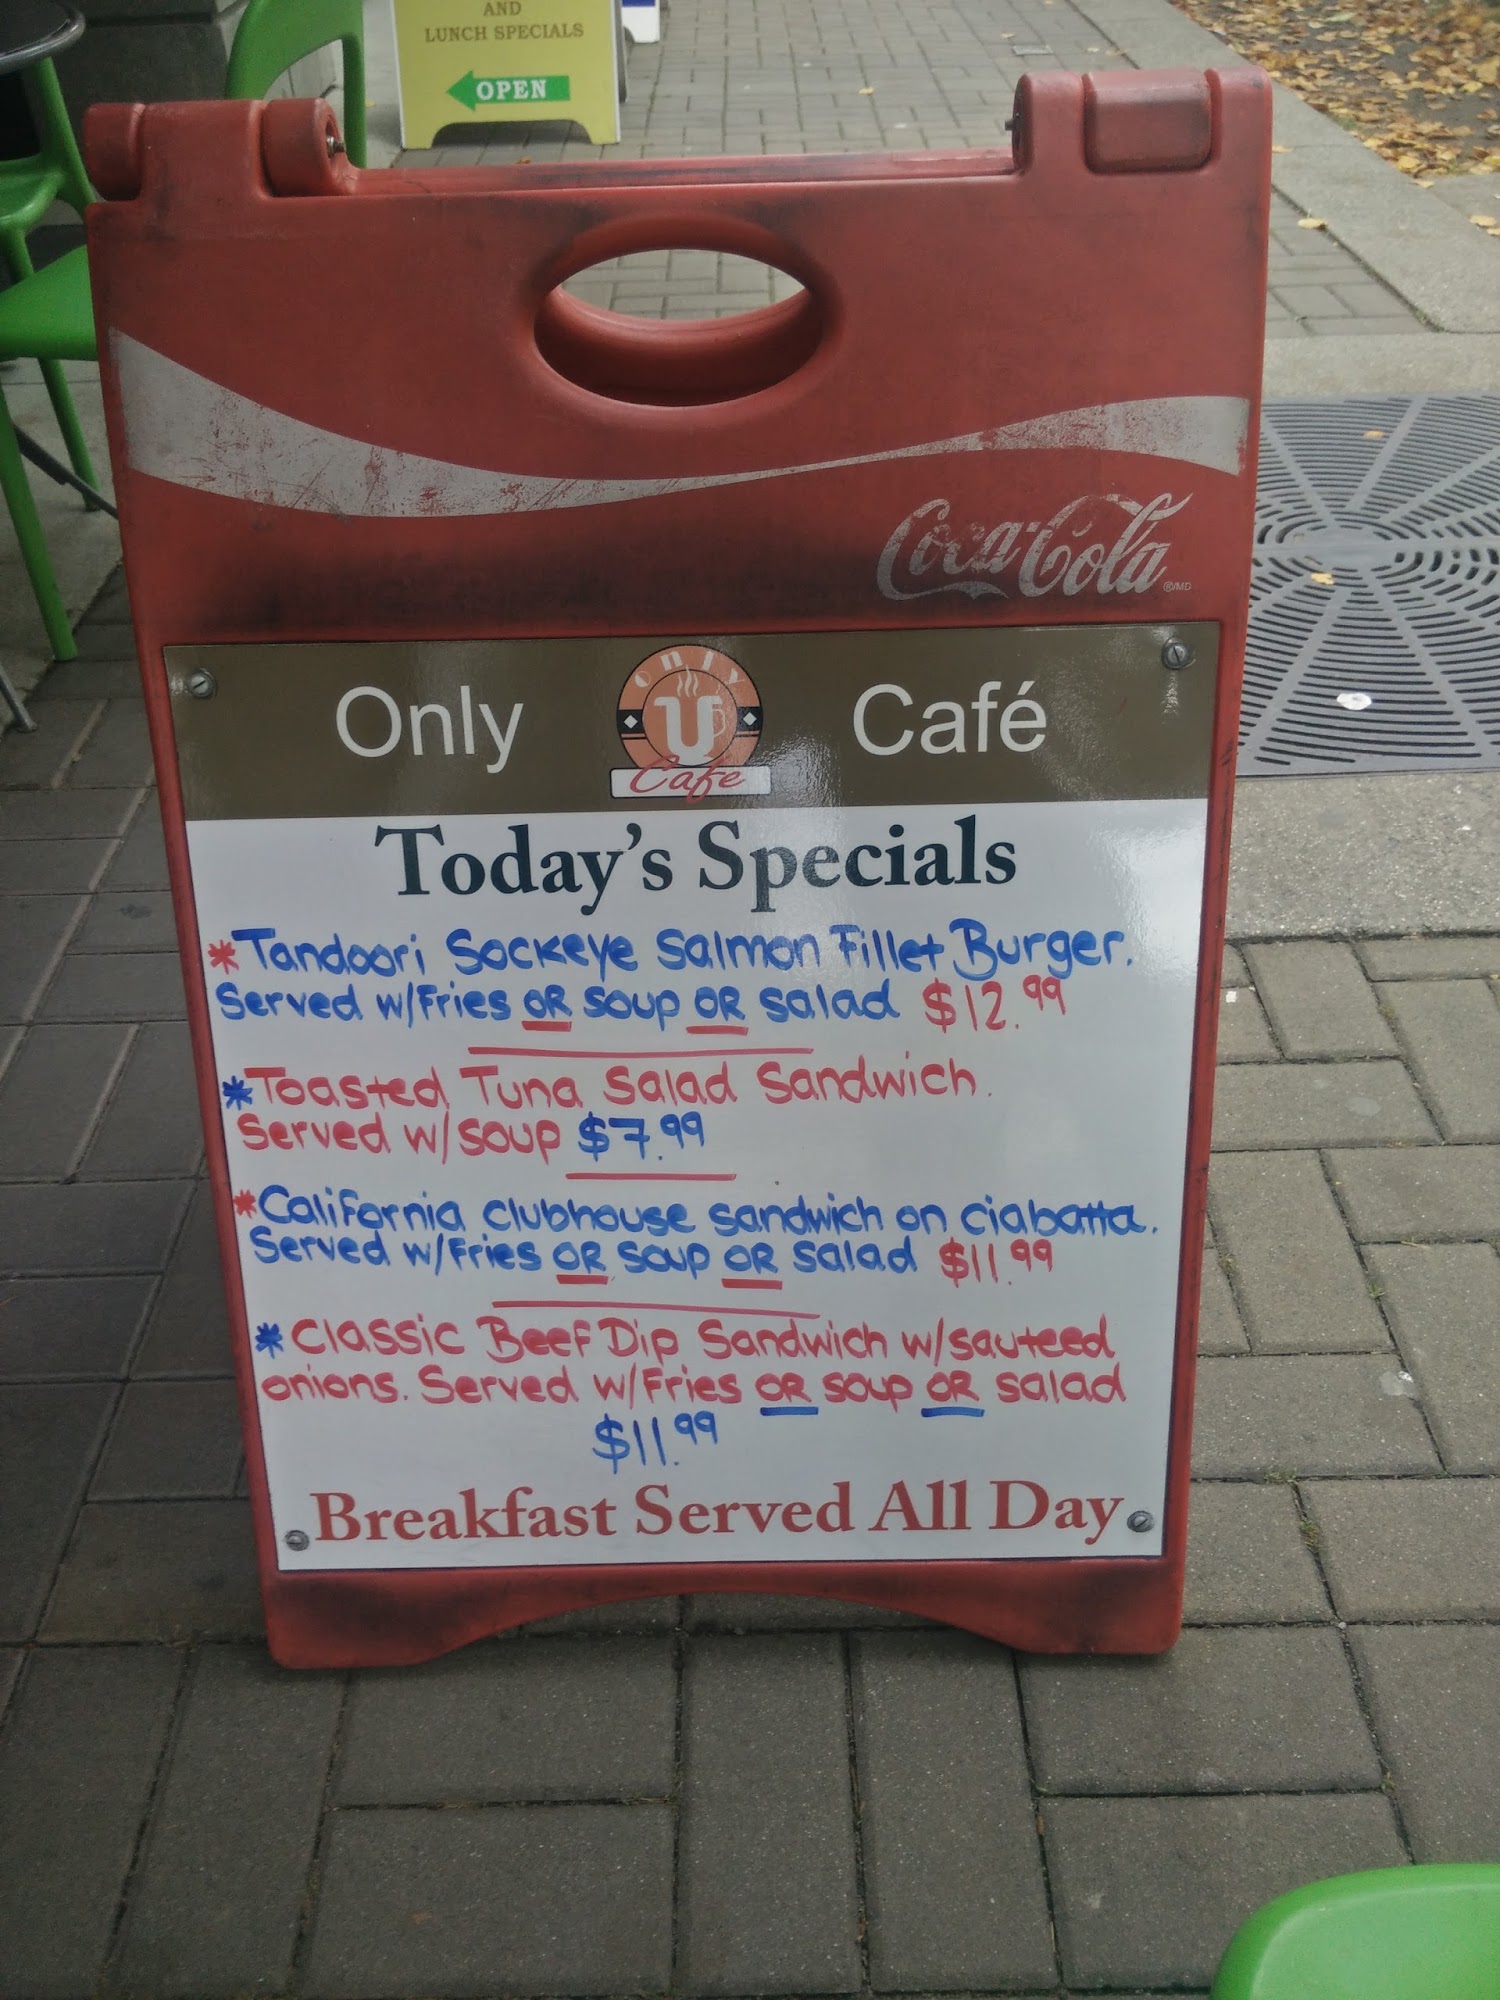 AND
LUNCH SPECIALS
OPEN
Coca-Cola ®/MD
Only Only U Café Café
Today's Specials
*Tandoori Sockeye Salmon Fillet Burger.
Served w/Fries OR soup OR salad $12.99
*Toasted Tuna Salad Sandwich.
Served w/soup $7.99
*California clubhouse sandwich on ciabatta.
Served w/Fries OR soup OR salad $11.99
*Classic Beef Dip Sandwich w/sauteed
onions. Served w/Fries OR soup OR salad
$11.99
Breakfast Served All Day